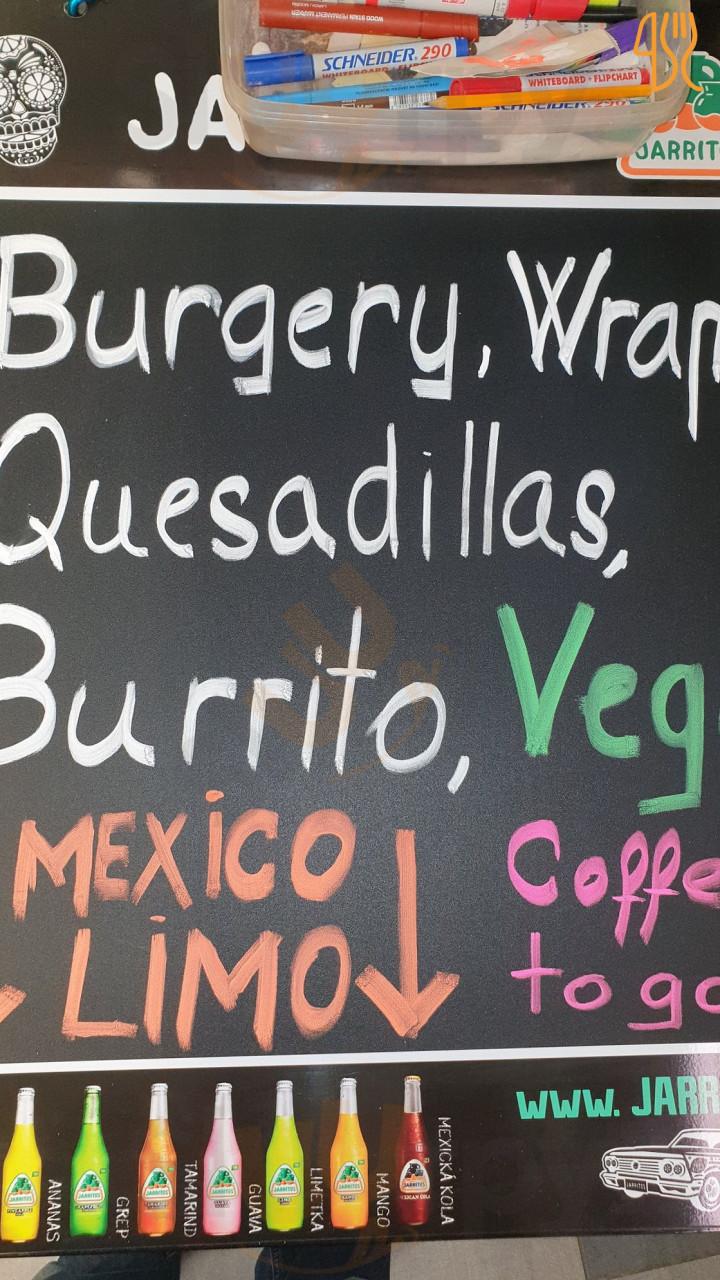 JA
SCHNEIDER 290
WHITEBOARD + FLIPCHART
JARRIT
Burgery, Wrap
Quesadillas,
Burrito, Veg
MEXICO
LIMO
Coffe
to go
www. JARR
ANANAS
GREP
TAMARIND
GUAVA
LIMETKA
MANGO
MEXICKÁ KOLA
JARRITOS
JARRITOS
JARRITOS
JARRITOS
JARRITOS
JARRITOS